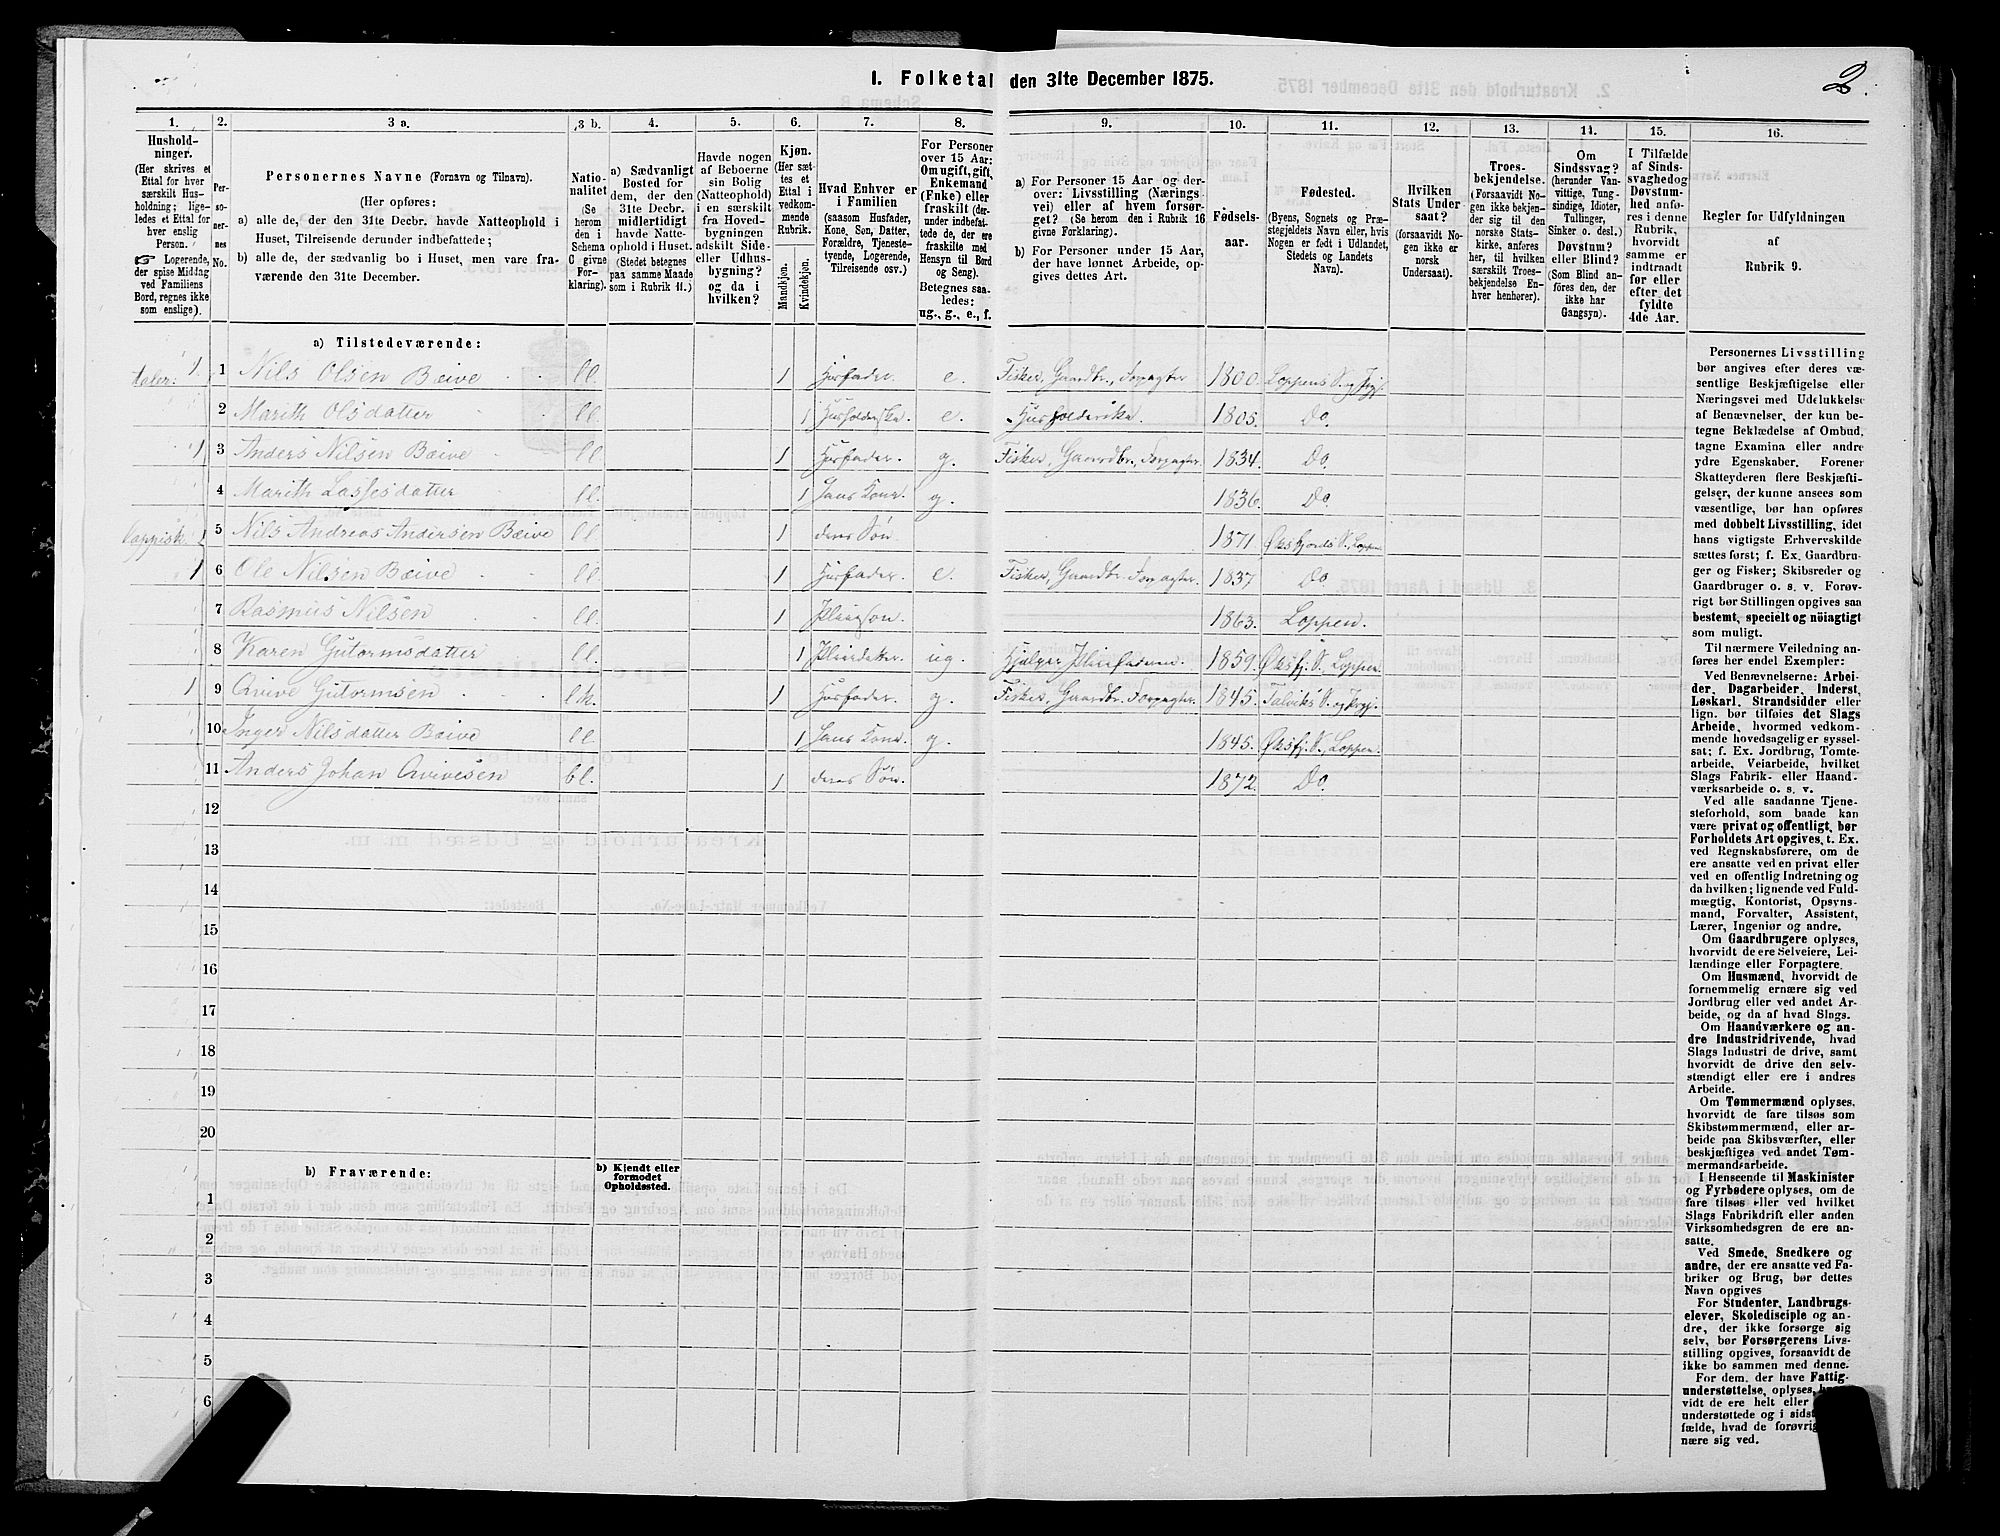 I. Folketal den 31te December 1875.
2.
1.
Hushold-
ninger.
(Her skrives et
Ettal for hver
særskilt Hus-
holdning; lige-
ledes et Ettal for
hver enslig
Person.
☞ Logerende,
der spise Middag
ved Familiens
Bord, regnes ikke
som enslige).
2.
Per-
so-
ner-
nes
No.
3 a.
Personernes Navne (Fornavn og Tilnavn).
(Her opføres:
a) alle de, der den 31te Decbr. havde Natteophold i
Huset, Tilreisende derunder indbefattede;
b) alle de, der sædvanlig bo i Huset, men vare fra-
værende den 31te December.
3 b.
Natio-
nalitet
(Se
herom
den i
Schema
C givne
For-
klaring).
4.
a) Sædvanligt
Bosted for
dem, der den
31te Decbr.
midlertidigt
havde Natte-
ophold i Huset.
(Stedet betegnes
paa samme Maade
som i Rubrik 11.)
5.
Havde nogen
af Beboerne
sin Bolig
(Natteophold)
i en særskilt
fra Hoved-
bygningen
adskilt Side-
eller Udhus-
bygning?
og da i
hvilken?
6.
Kjøn.
(Her sæt-
tes et
Ettal i
vedkom-
mende
Rubrik.
Mandkjøn.
Kvindekjøn.
7.
Hvad Enhver er
i Familien
(saasom Husfader,
Kone, Søn, Datter,
Forældre, Tjeneste-
tyende, Logerende,
Tilreisende osv.)
8.
For Personer
over 15 Aar:
Om ugift, gift,
Enkemand
(Enke) eller
fraskilt (der-
under indbefat-
tede de, der ere
fraskilte med
Hensyn til Bord
og Seng).
Betegnes saa-
ledes:
ug., g., e., f.
9.
a) For Personer 15 Aar og der-
over: Livsstilling (Nærings-
vei) eller af hvem forsør-
get? (Se herom den i Rubrik 16
givne Forklaring).
b) For Personer under 15 Aar,
der have lønnet Arbeide, op-
gives dettes Art.
10.
Fødsels-
aar.
11.
Fødested.
(Byens, Sognets og Præ-
stegjeldets Navn eller, hvis
Nogen er født i Udlandet,
Stedets og Landets
Navn).
12.
Hvilken
Stats Under-
saat?
(forsaavidt No-
gen ikke er
norsk
Undersaat).
13.
Troes-
bekjendelse.
(Forsaavidt No-
gen ikke bekjen-
der sig til den
norske Stats-
kirke, anføres
her, til hvilken
særskilt Troes-
bekjendelse En-
hver henhører).
14.
Om
Sindssvag?
(herunder Van-
vittige, Tung-
sindige, Idioter,
Tullinger,
Sinker o. desl.)
Døvstum?
eller Blind?
(Som Blind an-
føres den, der
ikke har
Gangsyn).
15.
I Tilfælde
af Sinds-
svaghed og
Døvstum-
hed anfø-
res i denne
Rubrik,
hvorvidt
samme er
indtraadt
før eller
efter det
fyldte
4de Aar.
16.
Regler for Udfyldningen
af
Rubrik 9.
a) Tilstedeværende:
taler: 1. 1 Nils Olsen Bæive ll. 1 Husfader. e. Fisker, Gaardbr., Forpagter 1800. Loppens S. og Prgj.
2 Marith Olsdatter ll. 1 Husholderske. e. Husholderske. 1805. Do.
1 3 Anders Nilsen Bæive ll. 1 Husfader. g. Fisker, Gaardbr., Forpagter. 1834. Do.
4 Marith Lassesdatter ll. 1 Hans Kone. g. 1836. Do.
lappisk. 5 Nils Andreas Andersen Bæive ll. 1 deres Søn. 1871. Øksfjords S., Loppen
1 6 Ole Nilsen Bæive ll. 1 Husfader. e. Fisker, Gaardbr. Forpagter. 1837 Do.
7 Rasmus Nilsen ll. 1 Pleiesøn. 1863. Loppen.
8 Karen Gutormsdatter ll. 1 Pleiedatter. ug. Hjælper Pleiefaderen. 1859. Øksfj. S. Loppen.
1 9 Qvive Gutormsen lk. 1 Husfader. g. Fisker, Gaardbr. Forpagter. 1845. Talviks S. og Prgj.
10 Inger Nilsdatter Bæive ll. 1 Hans Kone. g. 1845. Øksfj. S., Loppen.
11 Anders Johan Qvivesen bl. 1 deres Søn. 1872. Do.
12
13
14
15
16
17
18
19
20
b) Fraværende:
b) Kjendt eller
formodet
Opholdssted.
1
2
3
4
5
6
Personernes Livsstilling
bør angives efter deres væ-
sentlige Beskjæftigelse eller
Næringsvei med Udelukkelse
af Benævnelser, der kun be-
tegne Beklædelse af Ombud,
tagne Examina eller andre
ydre Egenskaber. Forener
Skatteyderen flere Beskjæfti-
gelser, der kunne ansees som
væsentlige, bør han opføres
med dobbelt Livsstilling, idet
hans vigtigste Erhvervskilde
sættes først; f. Ex. Gaardbru-
ger og Fisker; Skibsreder og
Gaardbruger o. s. v. Forøv-
rigt bør Stillingen opgives saa
bestemt, specielt og nöiagtigt
som muligt.
Til nærmere Veiledning an-
føres her endel Exempler:
Ved Benævnelserne: Arbei-
der, Dagarbeider, Inderst,
Løskarl, Strandsidder eller
lign. bør tilføies det Slags
Arbeide, hvormed vedkom-
mende hovedsagelig er syssel-
sat; f. Ex. Jordbrug, Tomte-
arbeide, Veiarbeide, hvilket
Slags Fabrik- eller Haand-
værksarbeide o. s. v.
Ved alle saadanne Tjene-
steforhold, som baade kan
være privat og offentligt, bør
Forholdets Art opgives, t. Ex.
ved Regnskabsførere, om de
ere ansatte ved en privat eller
ved en offentlig Indretning og
da hvilken; lignende ved Fuld-
mægtig, Kontorist, Opsyns-
mand, Forvalter, Assistent,
Lærer, Ingeniør og andre.
Om Gaardbrugere oplyses,
hvorvidt de ere Selveiere, Lei-
lændinge eller Forpagtere.
Om Husmænd, hvorvidt de
fornemmelig ernære sig ved
Jordbrug eller ved andet Ar-
beide, og da af hvad Slags.
Om Haandværkere og an-
dre Industridrivende, hvad
Slags Industri de drive, samt
hvorvidt de drive den selv-
stændigt eller ere i andres
Arbeide.
Om Tømmermænd oplyses,
hvorvidt de fare tilsøs som
Skibstømmermænd, eller ar-
beide paa Skibsværfter, eller
beskjæftiges ved andet Tøm-
mermandsarbeide.
I Henseende til Maskinister
og Fyrbødere oplyses, om de
fare tilsøs eller ved hvilket
Slags Fabrikdrift eller anden
Virksomhedsgren de ere an-
satte.
Ved Smede, Snedkere og
andre, der ere ansatte ved Fa-
briker og Brug, bør dettes
Navn opgives
For Studenter, Landbrugs-
elever, Skoledisciple og an-
dre, der ikke forsørge sig
selv, bør Forsørgerens Livs-
stilling opgives, forsaavidt de
ikke bo sammen med denne.
For dem, der have Fattig-
understøttelse, oplyses,
vidt de ere helt eller
understøttede og i sidst
fælde, hvad de forøvrig
nære sig ved.